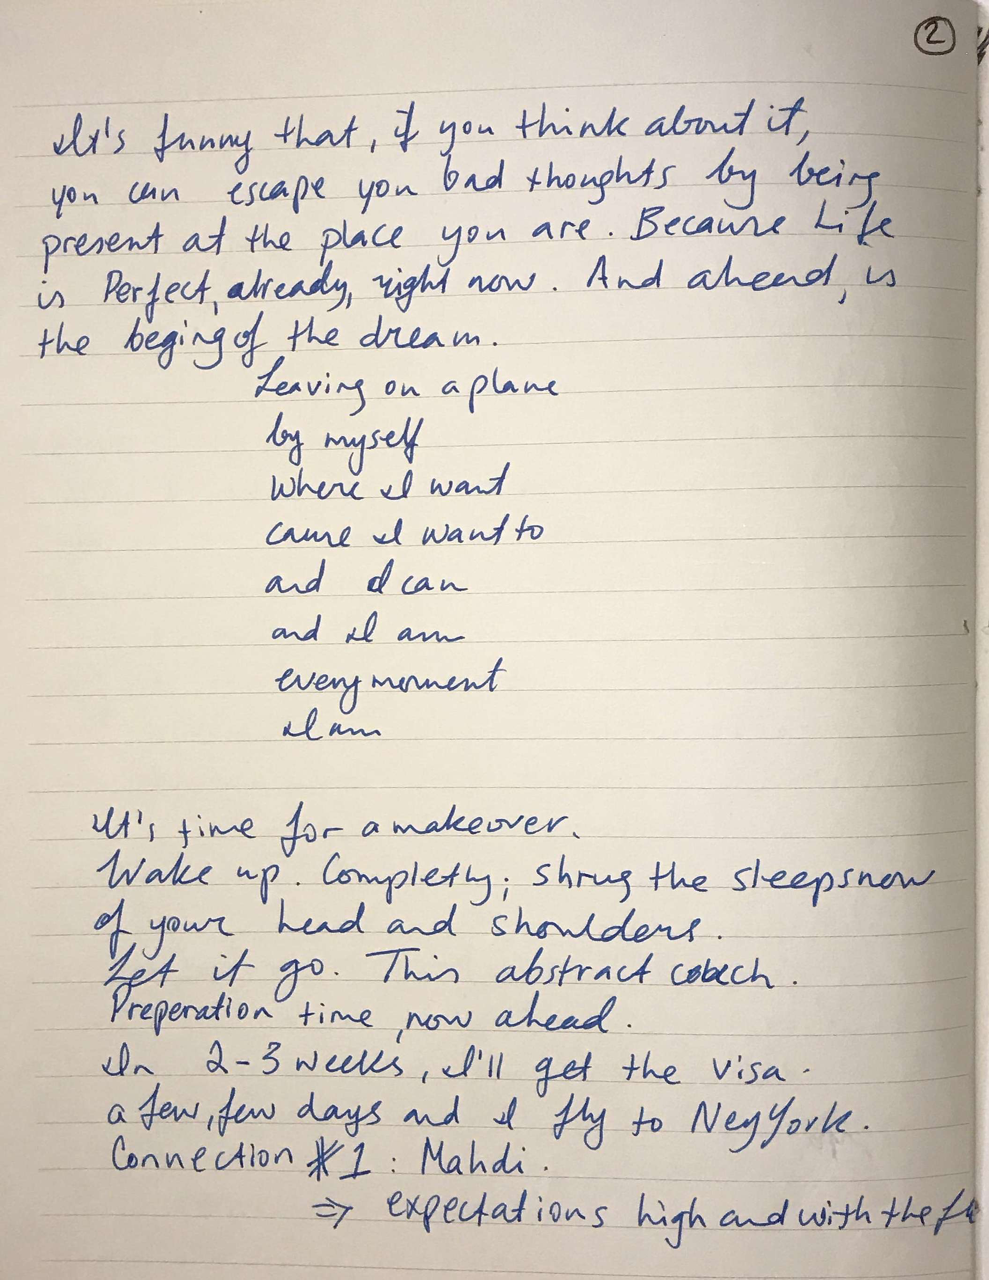 2
It's funny that, if you think about it,
you can escape you bad thoughts by being
present at the place you are. Because Life
is Perfect, already, right now. And ahead, is
the beging of the dream.
Leaving on a plane
by myself
where I want
cause I want to
and I can
and I am
every moment
I am
It's time for a makeover.
Wake up. Completly; shrug the sleepsnow
of your head and shoulders.
Let it go. This abstract .
Preperation time, now ahead.
In 2-3 weeks, I'll get the visa.
a few, few days and I fly to Ney York.
Connection #1 : Mahdi.
⇒ expectations high and with the